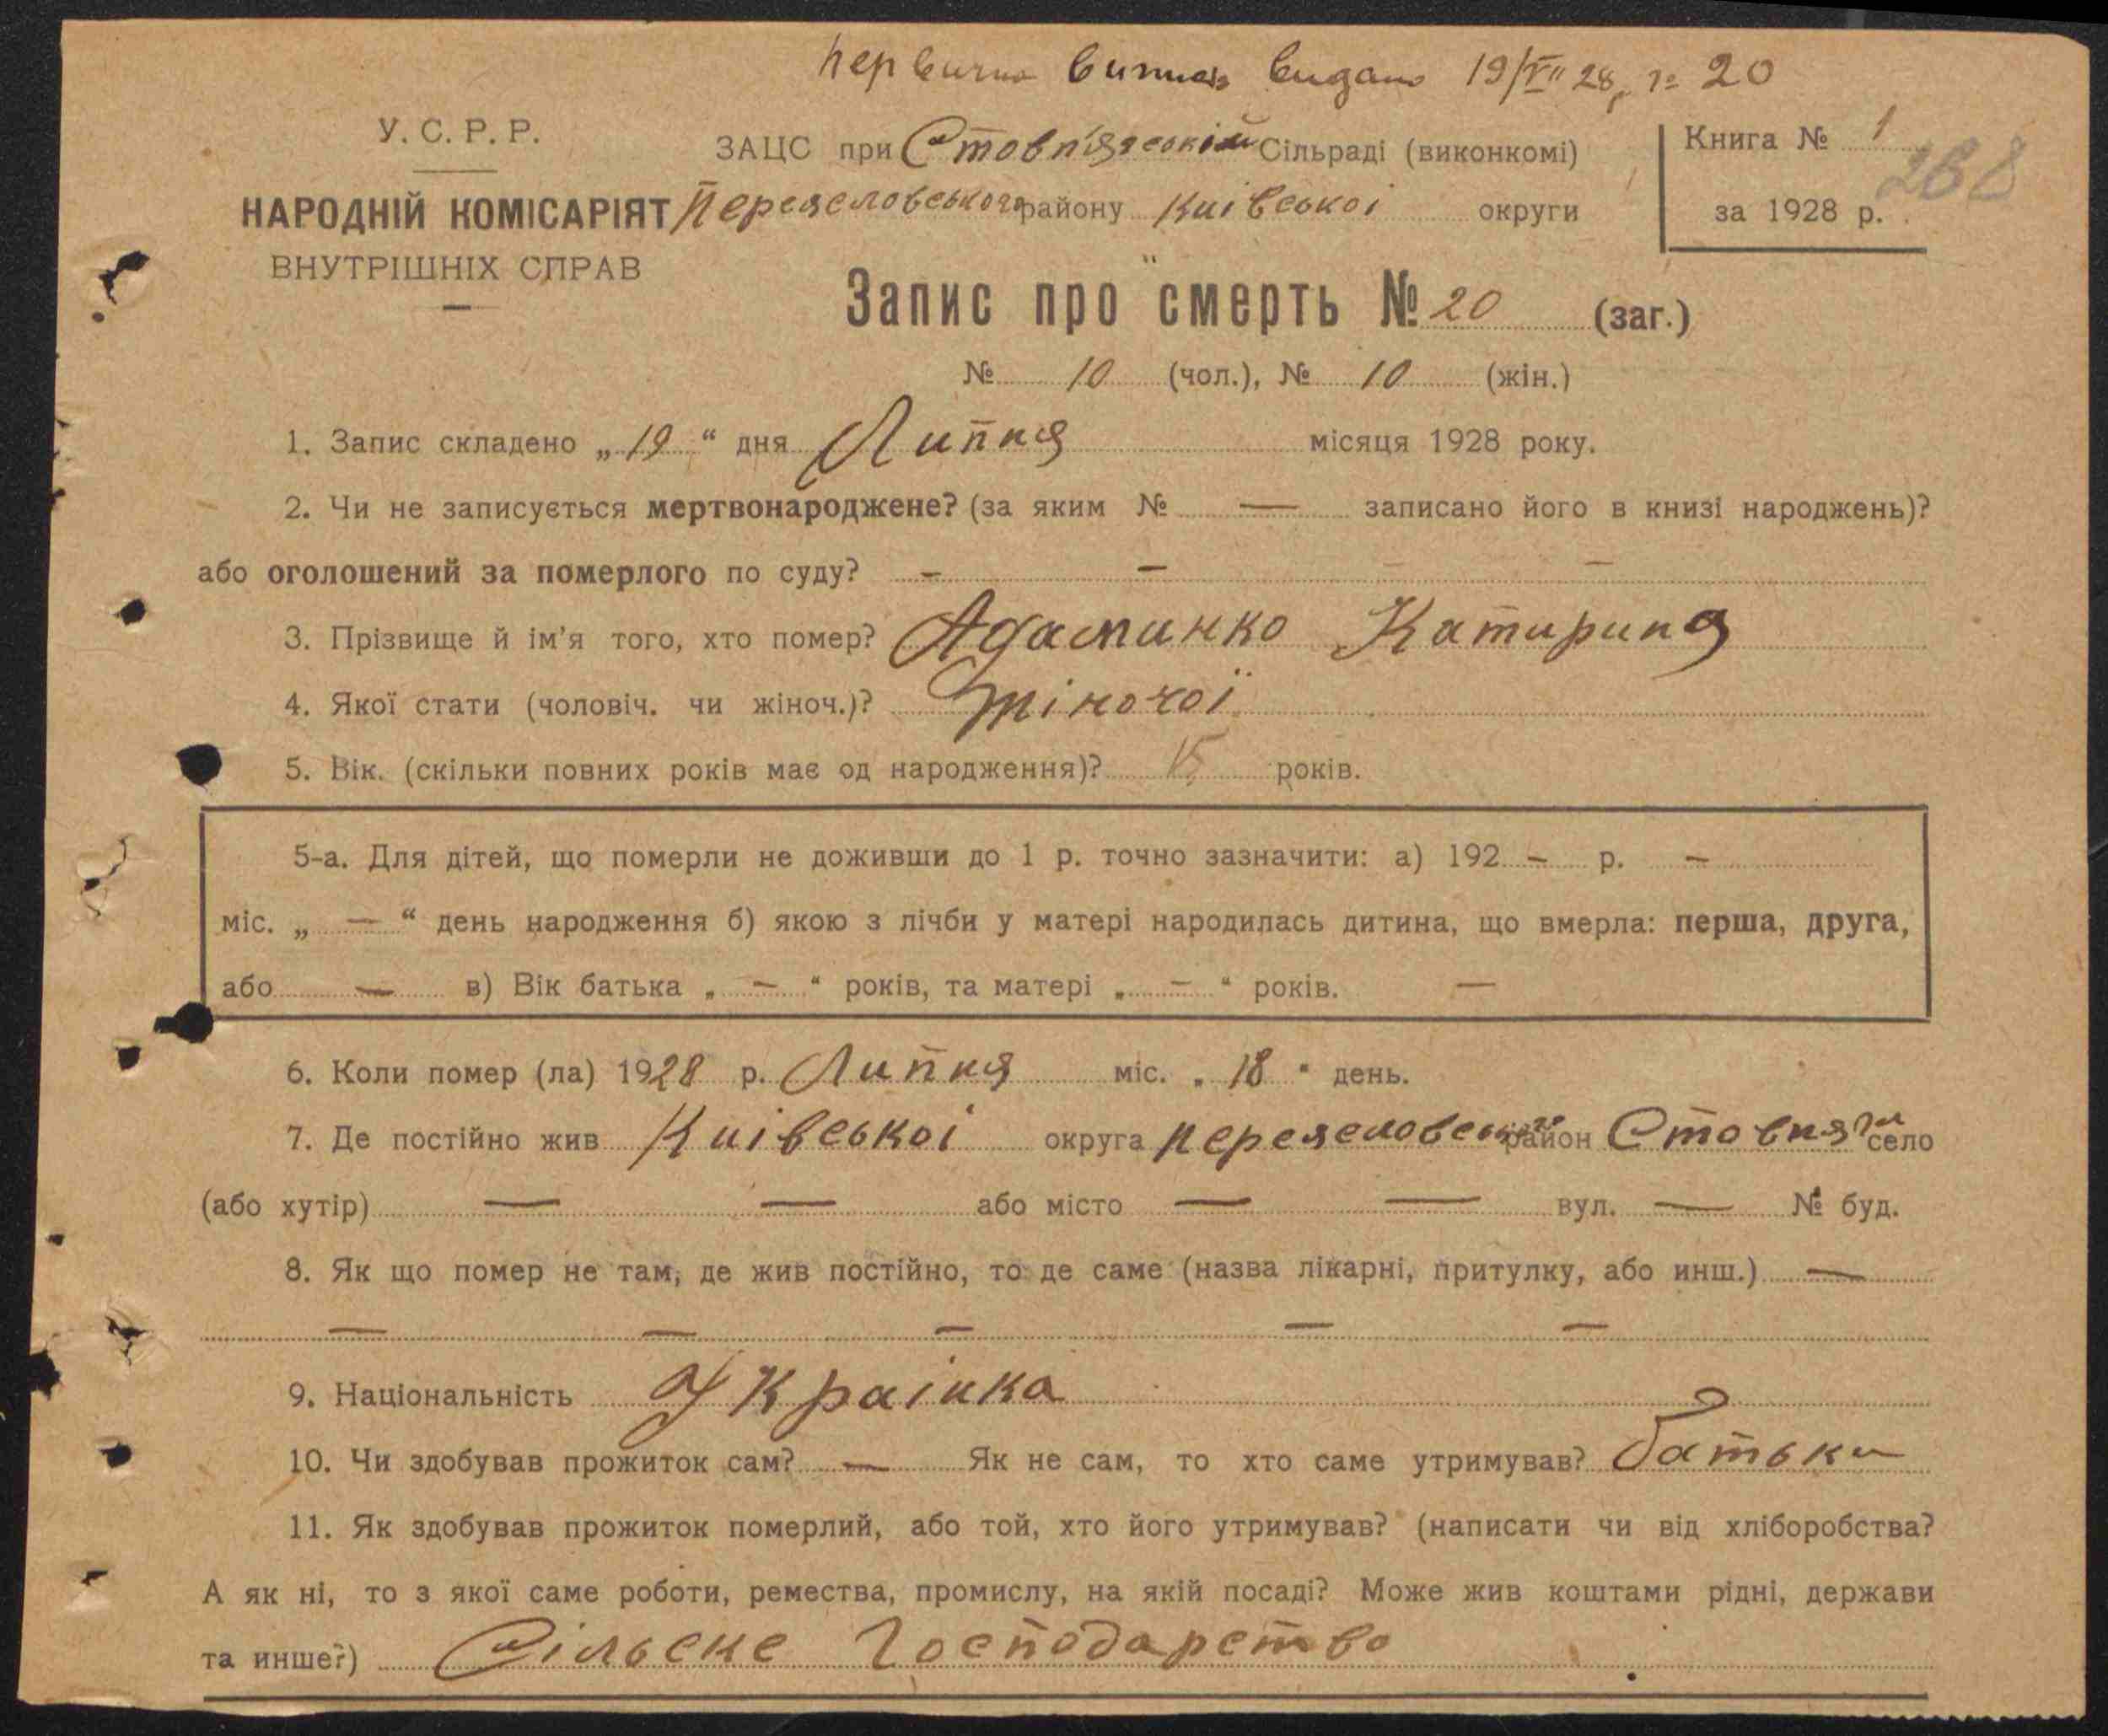 первична випись видано 19/VII 28 р № 20
У. С. Р. Р.
НАРОДНІЙ КОМІСАРІЯТ
ВНУТРІШНІХ СПРАВ
ЗАЦС при Стовп'язській Сільраді (виконкомі)
Переяславського району Київської округи
Книга № 1
268
за 1928 р.
Запис про смерть № 20 (заг.)
№ 10 (чол.), № 10 (жін.)
1. Запис складено „19“ дня Липня місяця 1928 року.
2. Чи не записується мертвонароджене? (за яким № — записано його в книзі народжень)?
або оголошений за померлого по суду? — — — —
3. Прізвище й ім’я того, хто помер? Адаминко Катирина
4. Якої стати (чоловіч. чи жіноч.)? жіночої
5. Вік. (скільки повних років має од народження)? 15 років.
5-а. Для дітей, що померли не доживши до 1 р. точно зазначити: а) 192 — р. —
міс. „ — “ день народження б) якою з лічби у матері народилась дитина, що вмерла: перша, друга,
або — в) Вік батька „ — “ років, та матері „ — “ років. —
6. Коли помер (ла) 1928 р. Липня міс. „18“ день.
7. Де постійно жив Київської округа переяслов район Стовпяги село
(або хутір) — — або місто — — вул. — № буд.
8. Як що помер не там, де жив постійно, то де саме (назва лікарні, притулку, або инш.) —
— — — — —
9. Національність Украінка
10. Чи здобував прожиток сам? — Як не сам, то хто саме утримував? батьки
11. Як здобував прожиток померлий, або той, хто його утримував? (написати чи від хліборобства?
А як ні, то з якої саме роботи, ремества, промислу, на якій посаді? Може жив коштами рідні, держави
та инше?) Сільске Господарство